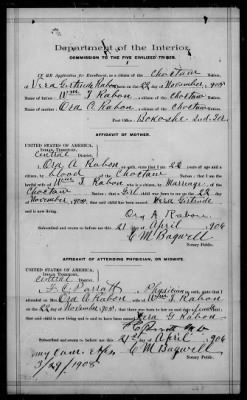 Department of the Interior.
COMMISSION TO THE FIVE CIVILIZED TRIBES.
IN RE Application for Enrollment, as a citizen of the Choctaw Nation,
of Vera Gertrude Rabon, born on the 22 day of November, 1905
Name of father: Wm. J. Rabon, a citizen of the Choctaw Nation.
Name of mother: Ora A. Rabon, a citizen of the Choctaw Nation.
Post Office: Bokoshe Ind. Ter.
AFFIDAVIT OF MOTHER.
UNITED STATES OF AMERICA,
INDIAN TERRITORY,
Central District.
I, Ora A. Rabon, on oath, state that I am 22 years of age and a
citizen, by blood, of the Choctaw Nation; that I am the
lawful wife of Wm J. Rabon, who is a citizen, by Marriage, of the
Choctaw Nation; that a Girl child was born to me on the 22 day of
November, 1905, that said child has been named Vera Gertrude,
and is now living.
Ora A. Rabon
Subscribed and sworn to before me this 21 day of April, 1906
C M Bagwell
Notary Public.
AFFIDAVIT OF ATTENDING PHYSICIAN, OR MIDWIFE.
UNITED STATES OF AMERICA,
INDIAN TERRITORY,
Central District.
I, F. C. Parrott, a Physician, on oath, state that I
attended on Mrs. Ora A Rabon, wife of Wm J. Rabon
on the 22 day of November, 1905, that there was born to her on said date a female
child; that said child is now living and is said to have been named Vera G. Rabon
F C Parrott M D
Subscribed and sworn to before me this 21st day of April, 1906
my com. exps. C M Bagwell
3/29/1908 Notary Public.